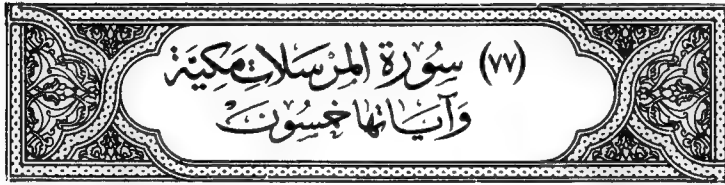 (٧٧) سُورَة المُرسَلاتِ مَكِيَّة
وَآيَانهَا خَمسُونَ